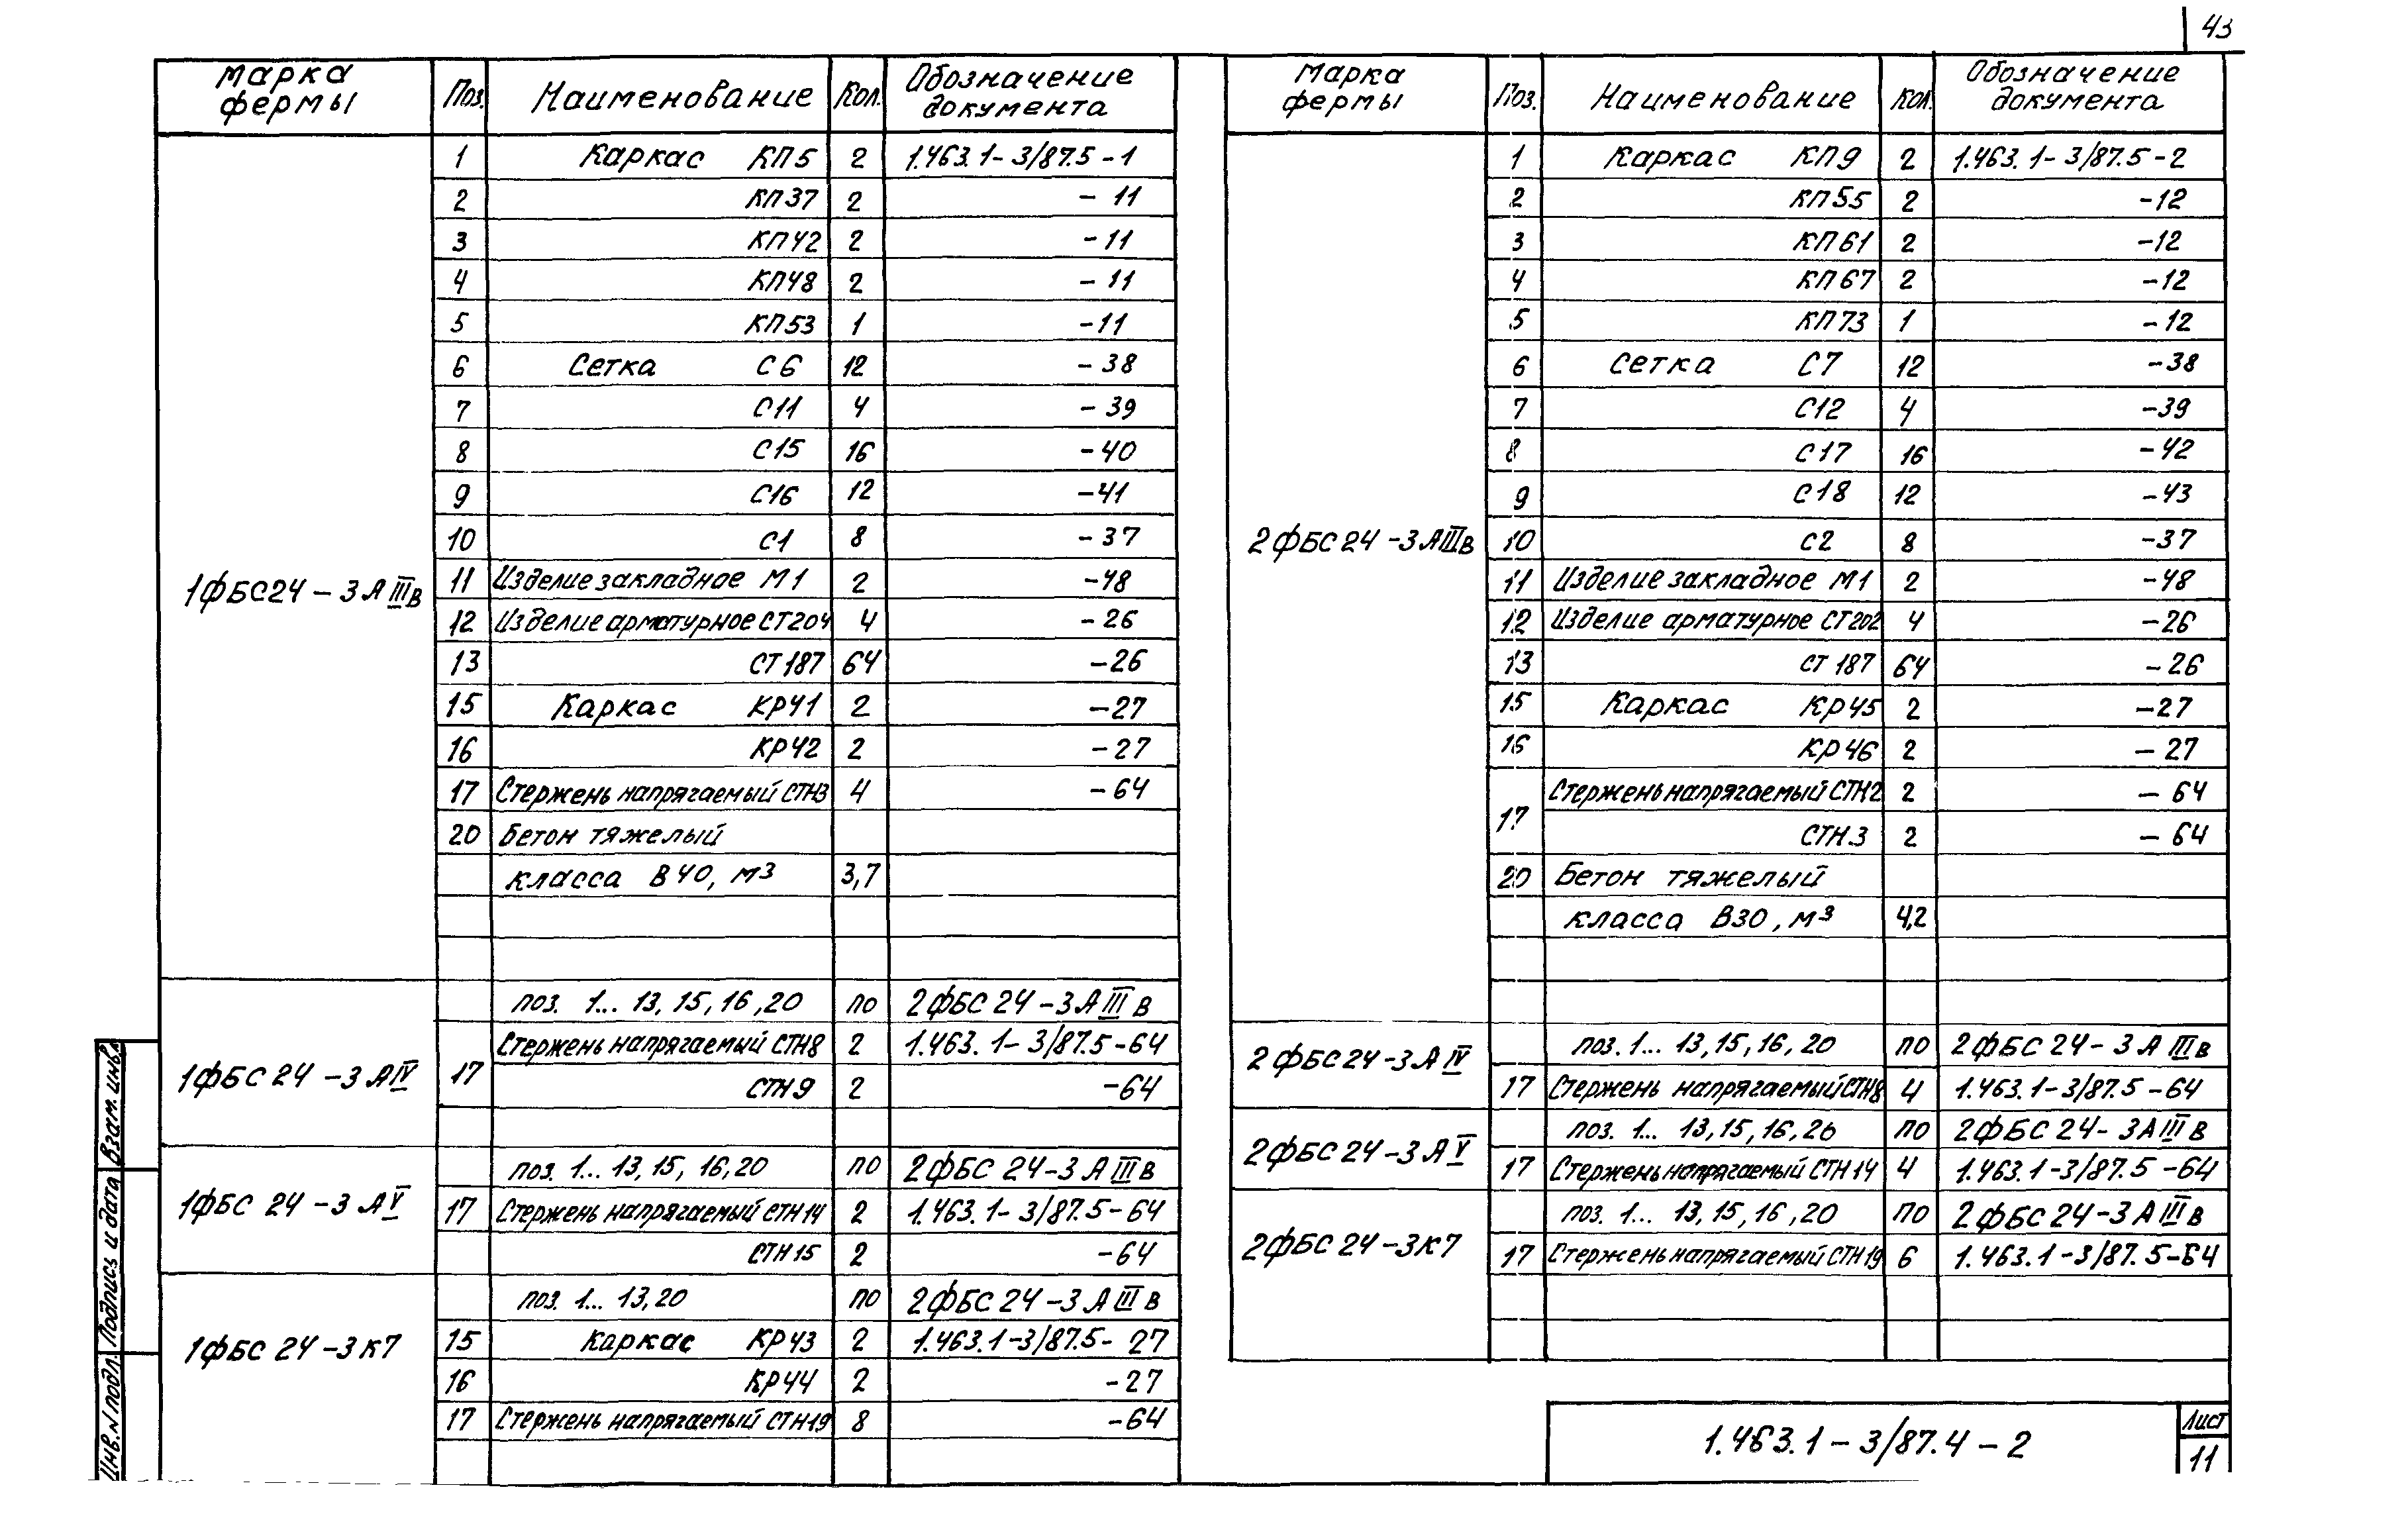 43
Марка фермы Поз. Наименование Кол. Обозначение документа
1ФБС24-3АIIIв
1 Каркас КП5 2 1.463.1-3/87.5-1
2 КП37 2 -11
3 КП42 2 -11
4 КП48 2 -11
5 КП53 1 -11
6 Сетка С6 12 -38
7 С11 4 -39
8 С15 16 -40
9 С16 12 -41
10 С1 8 -37
11 Изделие закладное М1 2 -48
12 Изделие арматурное СТ204 4 -26
13 СТ187 64 -26
15 Каркас КР41 2 -27
16 КР42 2 -27
17 Стержень напрягаемый СТН3 4 -64
20 Бетон тяжелый
класса В40, м3 3,7
1ФБС24-3АIV
поз. 1... 13, 15, 16, 20 по 2ФБС24-3АIIIв
17 Стержень напрягаемый СТН8 2 1.463.1-3/87.5-64
СТН9 2 -64
1ФБС24-3АV
поз. 1... 13, 15, 16, 20 по 2ФБС24-3АIIIв
17 Стержень напрягаемый СТН14 2 1.463.1-3/87.5-64
СТН15 2 -64
1ФБС24-3К7
поз. 1... 13, 20 по 2ФБС24-3АIIIв
15 Каркас КР43 2 1.463.1-3/87.5-27
16 КР44 2 -27
17 Стержень напрягаемый СТН19 8 -64
Марка фермы Поз. Наименование Кол. Обозначение документа
2ФБС24-3АIIIв
1 Каркас КП9 2 1.463.1-3/87.5-2
2 КП55 2 -12
3 КП61 2 -12
4 КП67 2 -12
5 КП73 1 -12
6 Сетка С7 12 -38
7 С12 4 -39
8 С17 16 -42
9 С18 12 -43
10 С2 8 -37
11 Изделие закладное М1 2 -48
12 Изделие арматурное СТ202 4 -26
13 СТ187 64 -26
15 Каркас КР45 2 -27
16 КР46 2 -27
17 Стержень напрягаемый СТН2 2 -64
СТН.3 2 -64
20 Бетон тяжелый
класса В30, м3 4,2
2ФБС24-3АIV
поз. 1... 13, 15, 16, 20 по 2ФБС24-3АIIIв
17 Стержень напрягаемый СТН8 4 1.463.1-3/87.5-64
2ФБС24-3АV
поз. 1... 13, 15, 16, 20 по 2ФБС24-3АIIIв
17 Стержень напрягаемый СТН14 4 1.463.1-3/87.5-64
2ФБС24-3К7
поз. 1... 13, 15, 16, 20 по 2ФБС24-3АIIIв
17 Стержень напрягаемый СТН19 6 1.463.1-3/87.5-64
1.463.1-3/87.4-2
Лист
11
Инв. N подл. Подпись и дата Взам. инв.